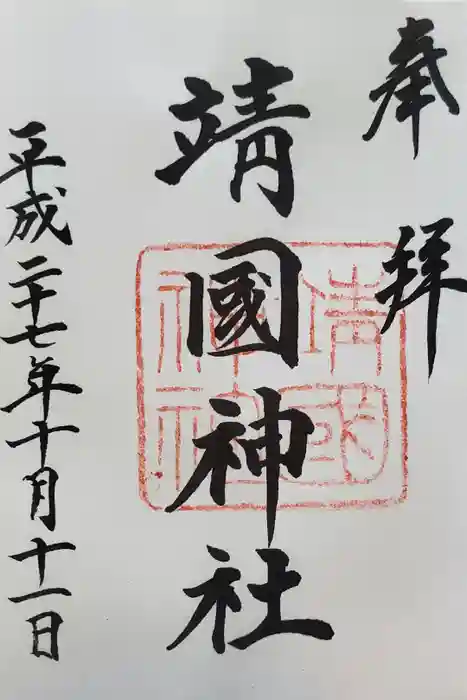 奉拜
靖國神社
平成二十七年十月十一日
靖國神社